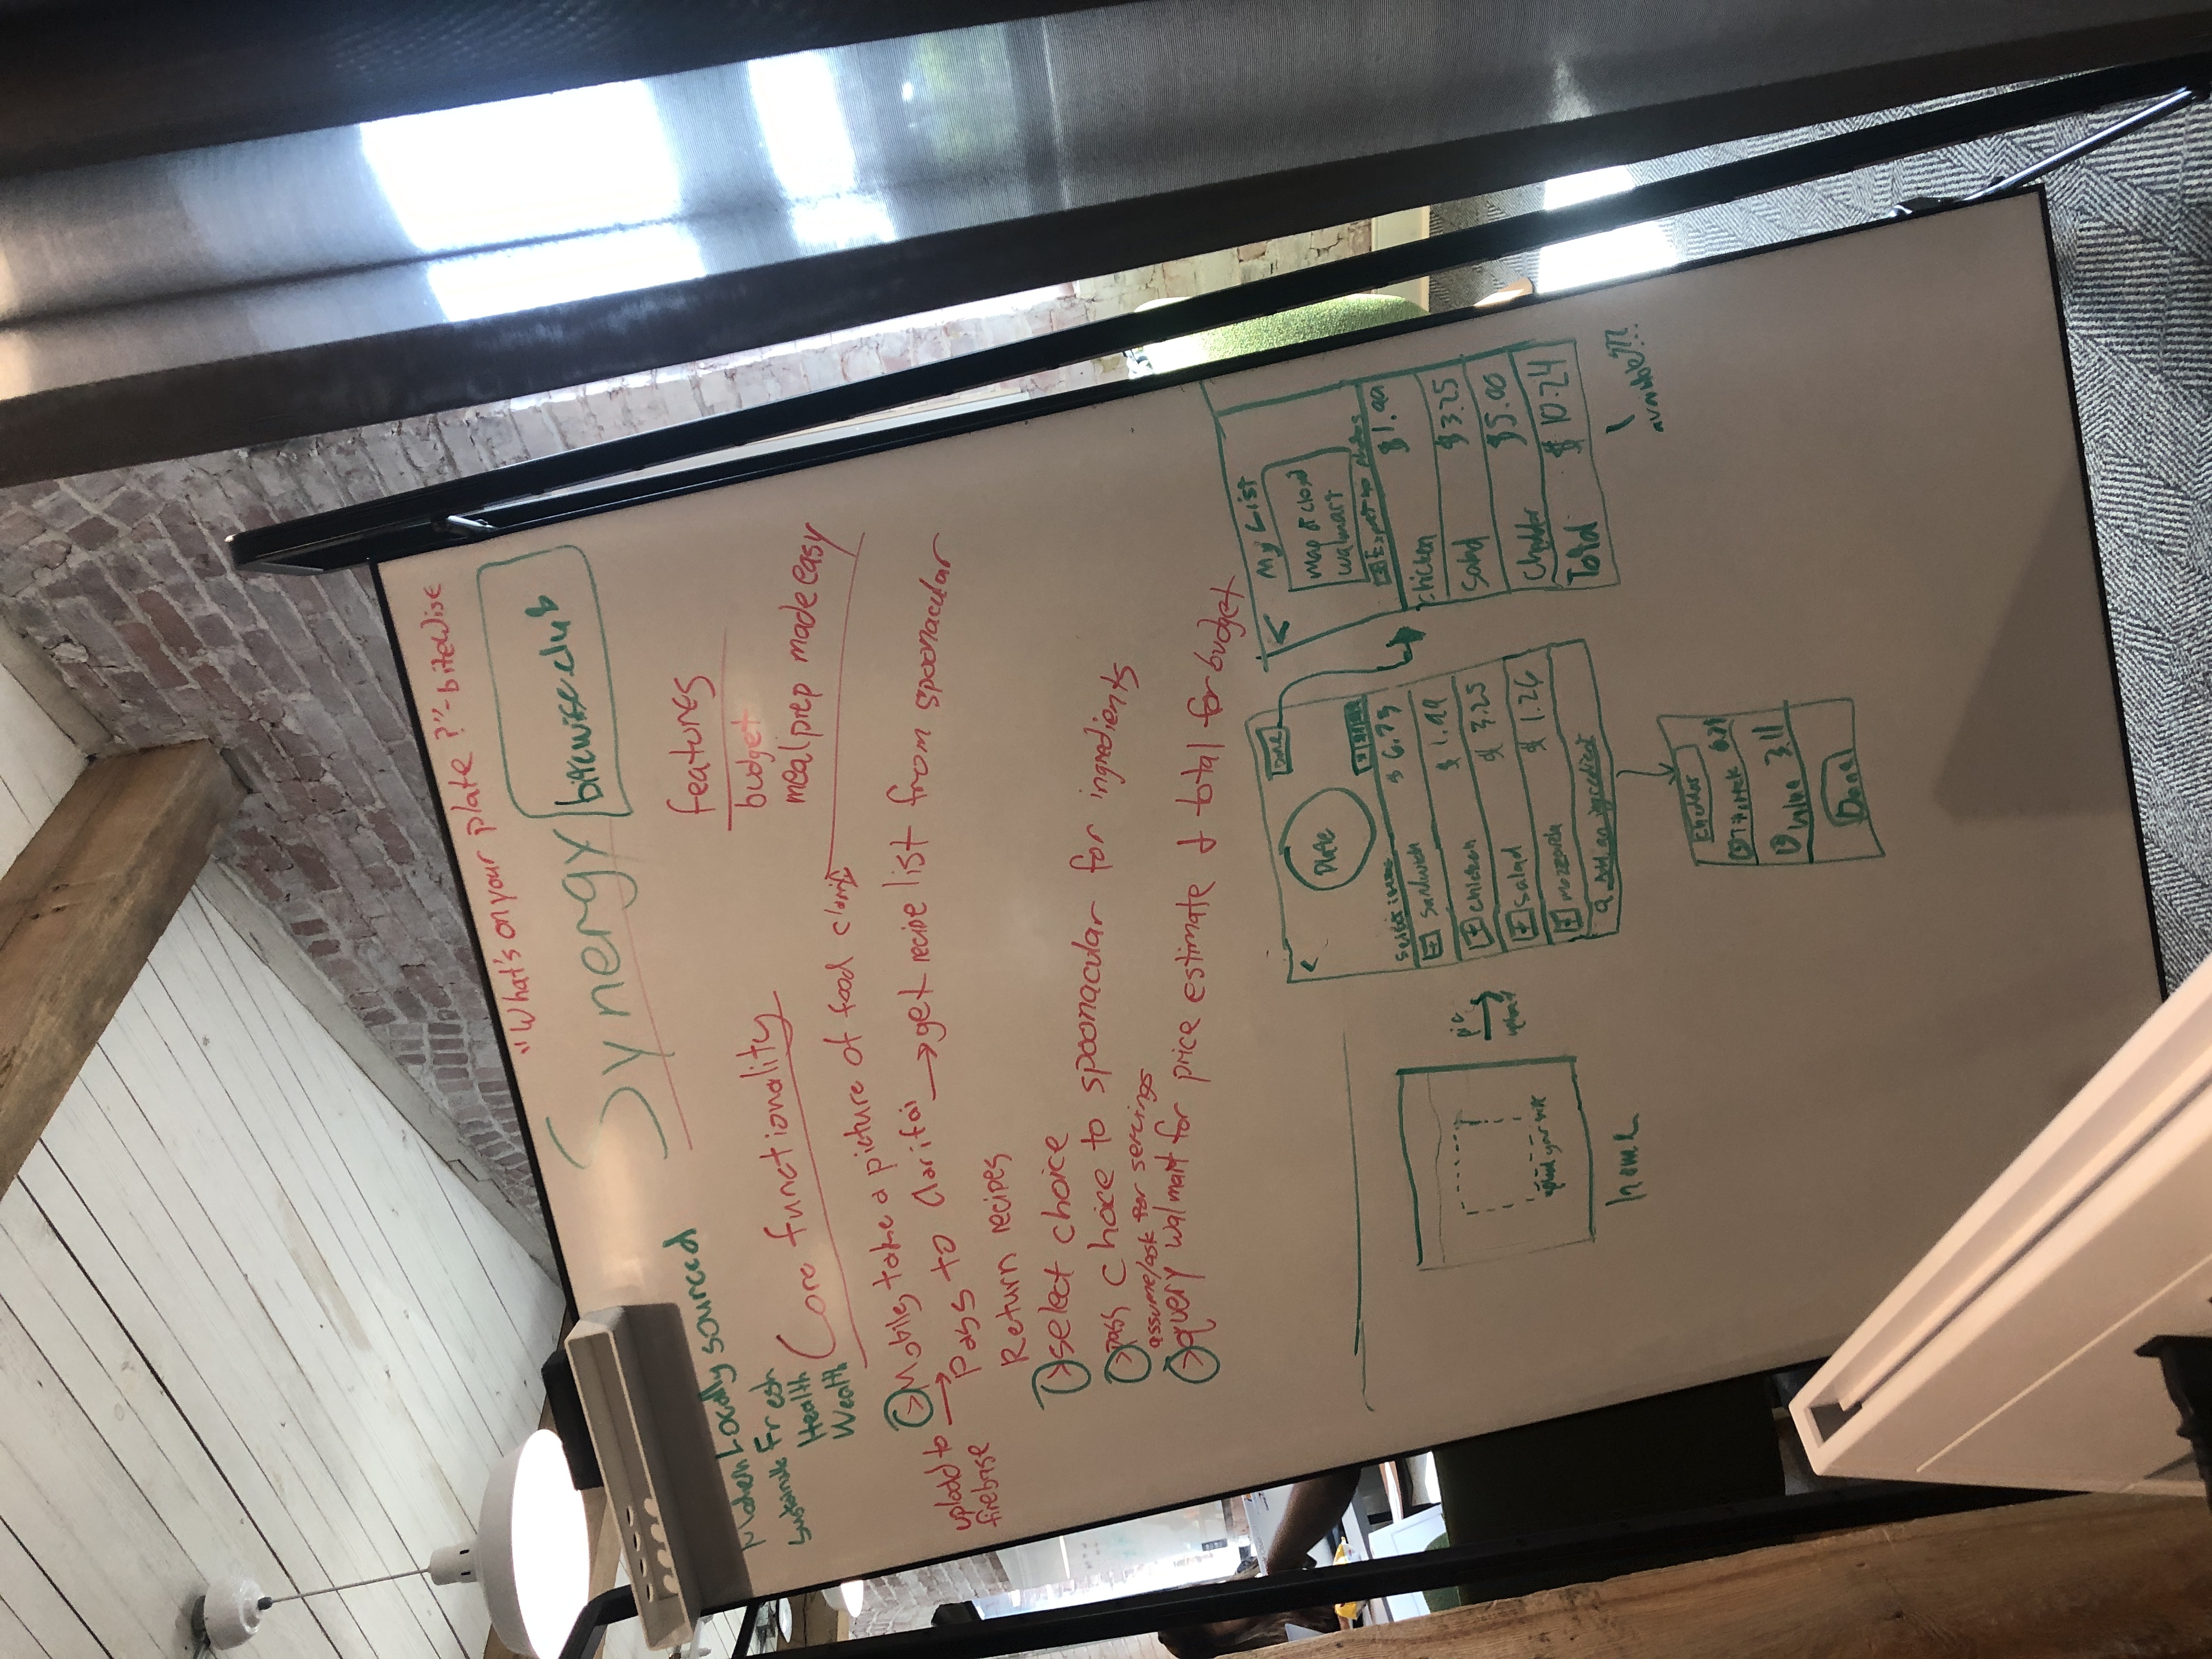 "What's on your plate?" - biteWise
Synergy
bitewise.club
Modern Locally sourced
Sustainable Fresh
Health
Wealth
features
budget
meal prep made easy
Core functionality
Mobile, take a picture of food
upload to firebase
Pass to Clarifai → get recipe list from spoonacular
Return recipes
select choice
pass choice to spoonacular for ingredients
assume/ask for servings
query walmart for price estimate & total for budget
upload your
home
pic
<
Plate
Done
Select items
+ Sandwich $ 6.73
+ chicken $ 1.99
+ Salad $ 3.25
+ mozzarella $ 1.26
Add an ingredient
Cheddar
Value 3.11
Done
<
My List
map of closest
walmart
Export to
chicken $1.99
Salad $3.25
Cheddar $5.00
Total $ 10.24
available???